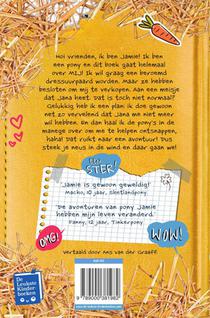 Hoi vrienden, ik ben Jamie! Ik ben
een pony en dit boek gaat helemaal
over MIJ! Ik wil graag een beroemd
dressuurpaard worden. Maar ze hebben
besloten om mij te verkopen. Aan een meisje
dat Jana heet. Dat is toch niet normaal?
Gelukkig heb ik een plan: ik doe gewoon
net zo vervelend dat Jana me niet meer
wil hebben. En dan haal ik de pony's in de
manege over om me te helpen ontsnappen,
haha! Dat ruikt naar een avontuur! Dus
steek je neus in de wind en daar gaan we!
STER!
'Jamie is gewoon geweldig!'
Macho, 10 jaar, Shetlandpony
'De avonturen van pony Jamie
hebben mijn leven veranderd.'
Fanny, 12 jaar, Tinkerpony
OMG!
WOW!
Vertaald door Ans van der Graaff
De
Leukste
Kinder
boeken